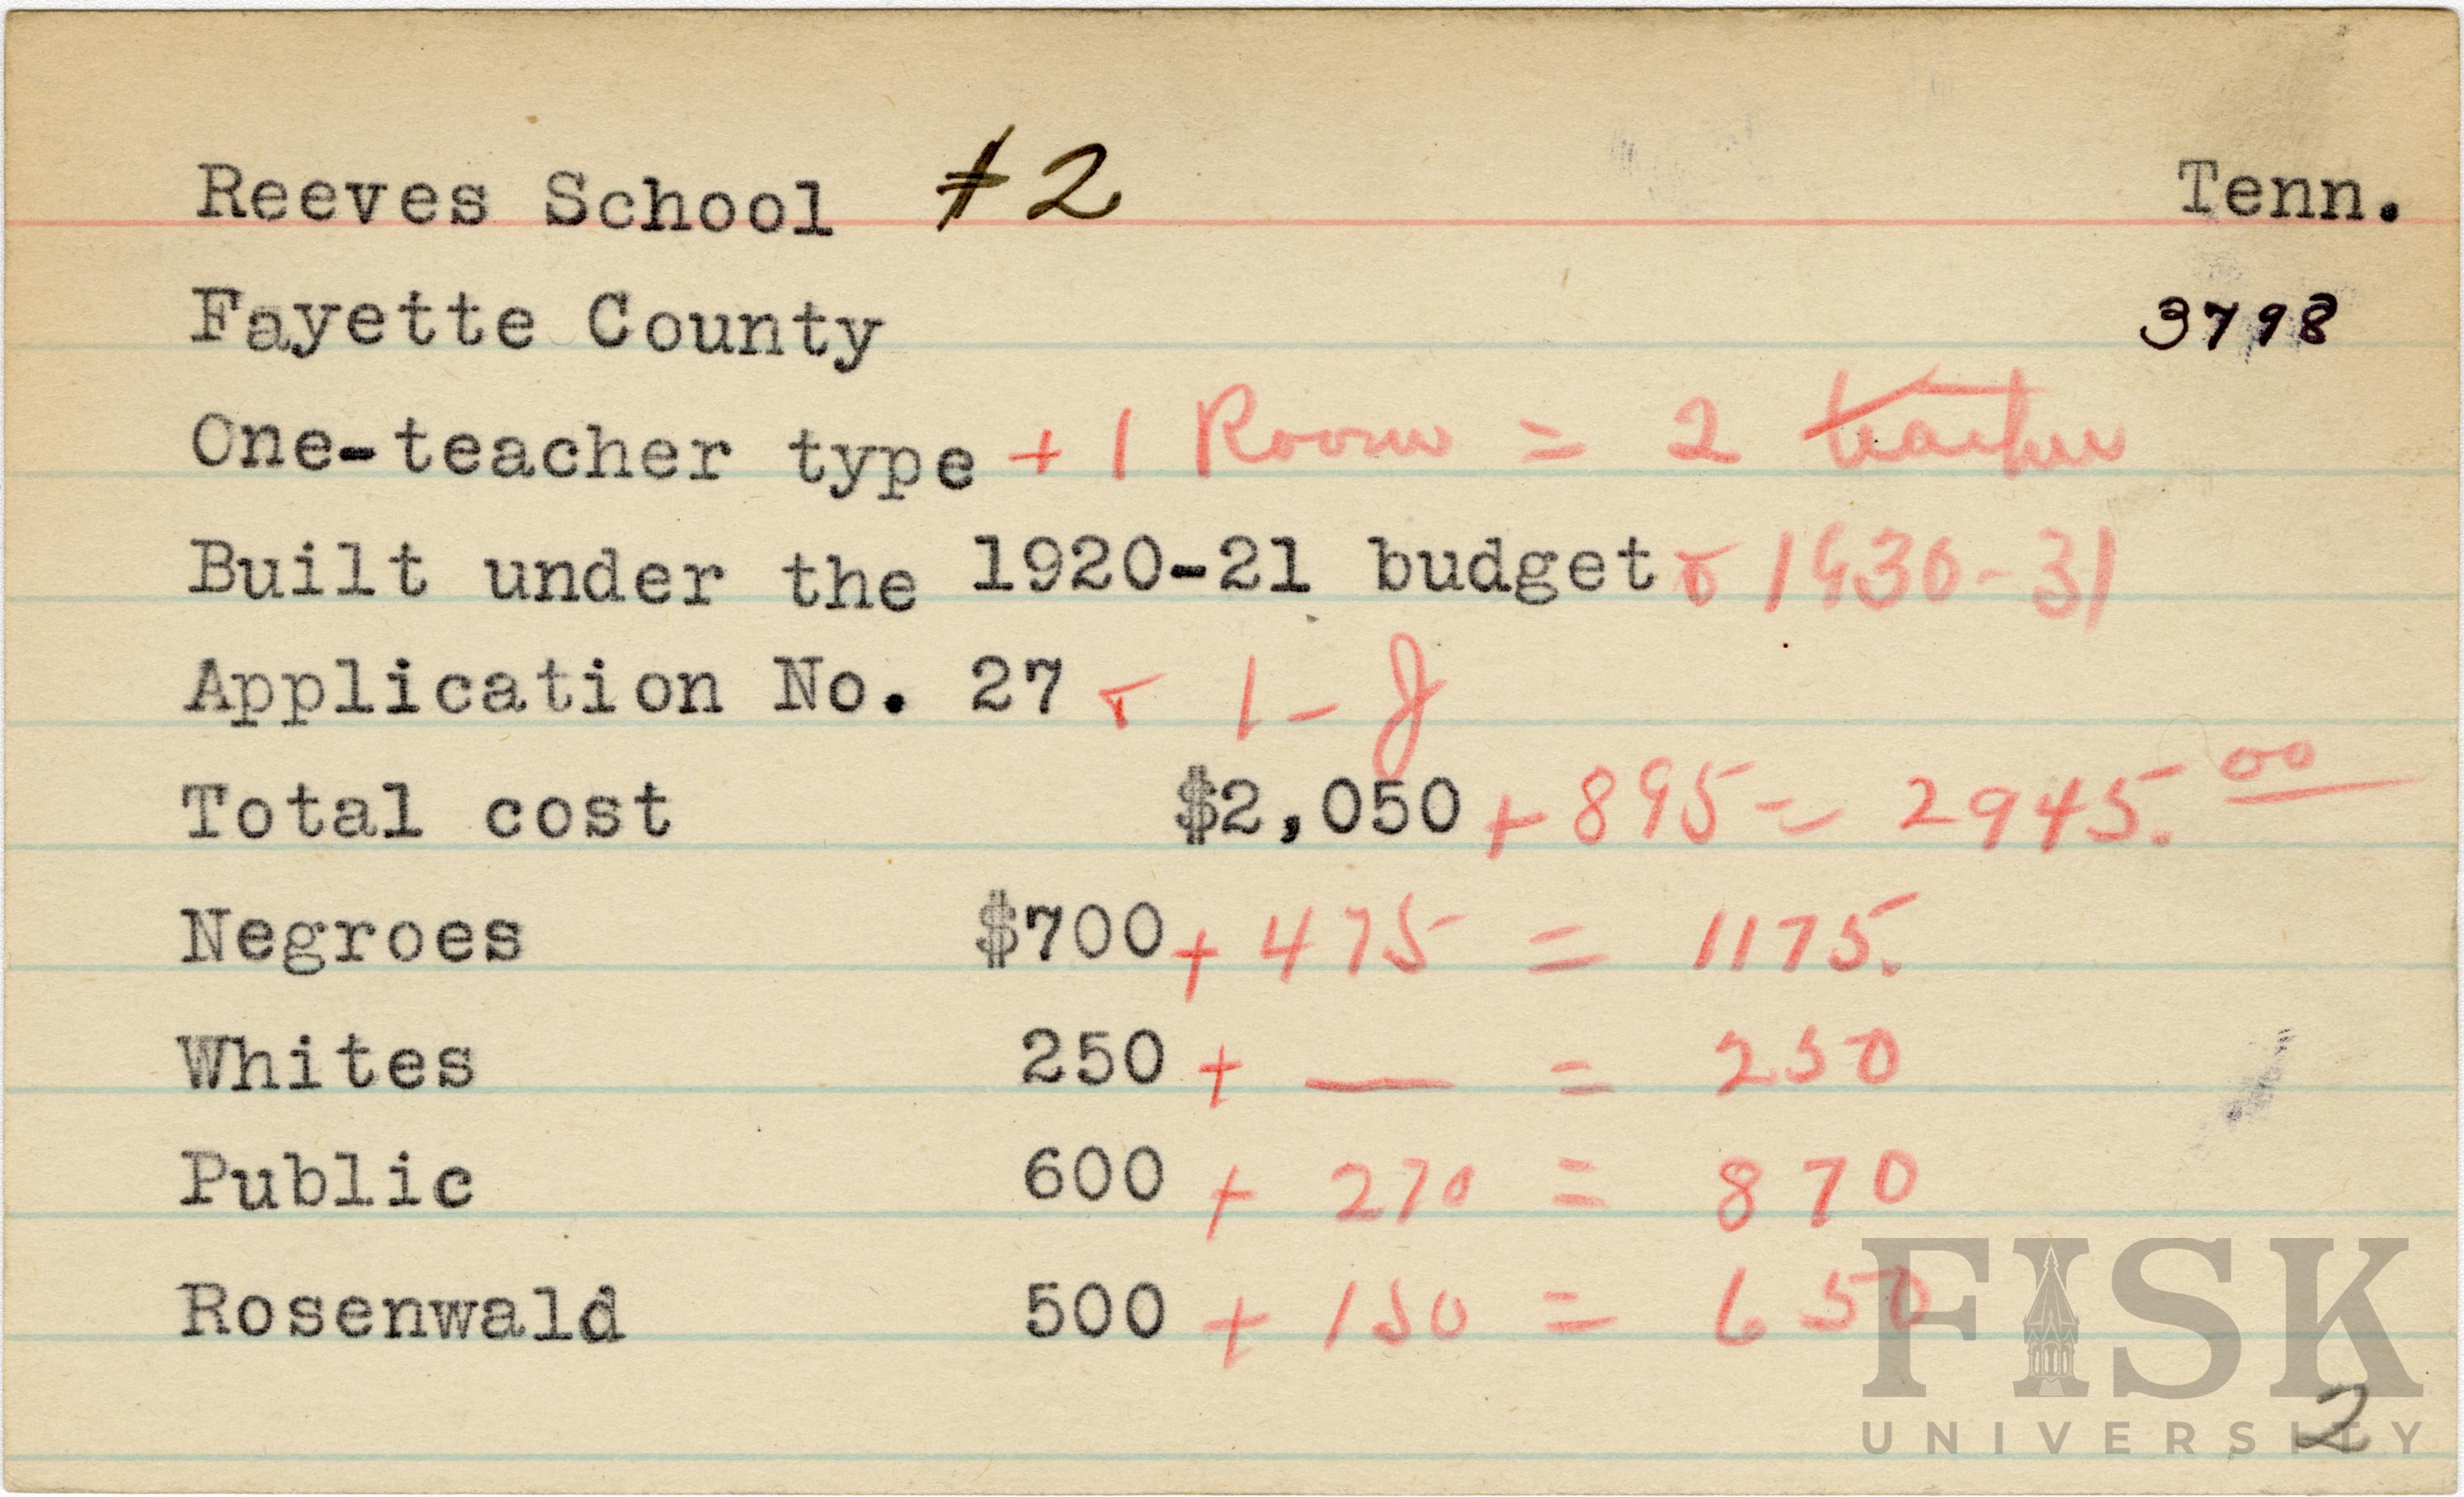 Reeves School #2 Tenn.
Fayette County 3798
One-teacher type + 1 Room = 2 teacher
Built under the 1920-21 budget & 1930-31
Application No. 27 & 1-J
Total cost $2,050 + 895 = 2945.00
Negroes $700 + 475 = 1175.
Whites 250 + — = 250
Public 600 + 270 = 870
Rosenwald 500 + 150 = 650
FISK
UNIVERSITY
2